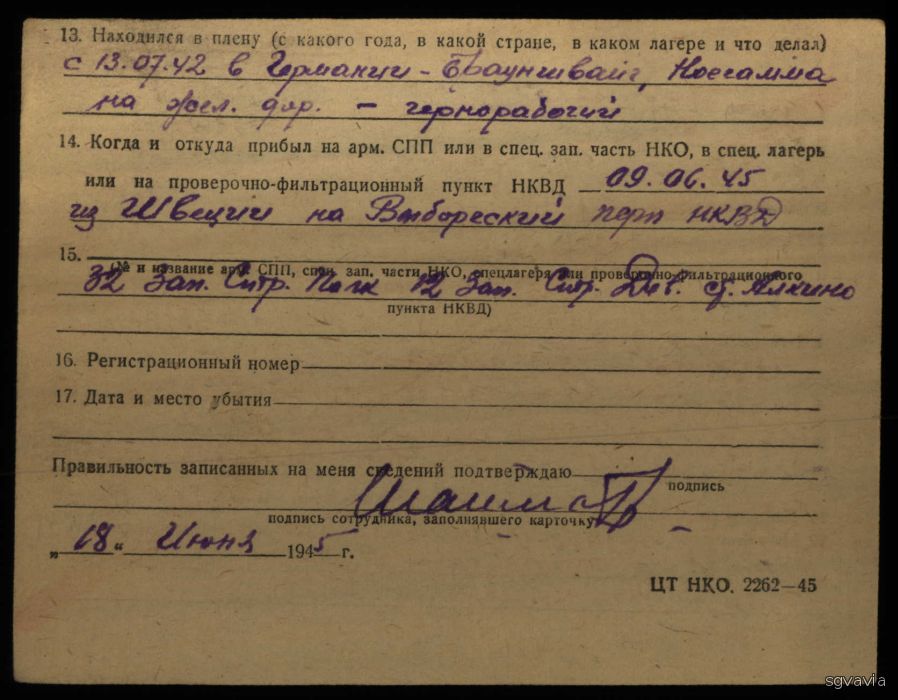 13. Находился в плену (с какого года, в какой стране, в каком лагере и что делал)
с 13.07.42 в Германии - Брауншвайг,
на жел. дор. – чернорабочий
14. Когда и откуда прибыл на арм. СПП или в спец. зап. часть НКО, в спец. лагерь
или на проверочно-фильтрационный пункт НКВД 09.06.45
из Швеции на Выборгский НКВД
15.
(№ и название арм. СПП, спец. зап. части НКО, спецлагеря или проверочно-фильтрационного
32 Зап. Стр. Полк 12 Зап. Стр. Див. ст. Алкино
пункта НКВД)
16. Регистрационный номер
17. Дата и место убытия
Правильность записанных на меня сведений подтверждаю
подпись
подпись сотрудника, заполнявшего карточку
„18“ Июня 1945 г.
ЦТ НКО. 2262—45
sgvavia